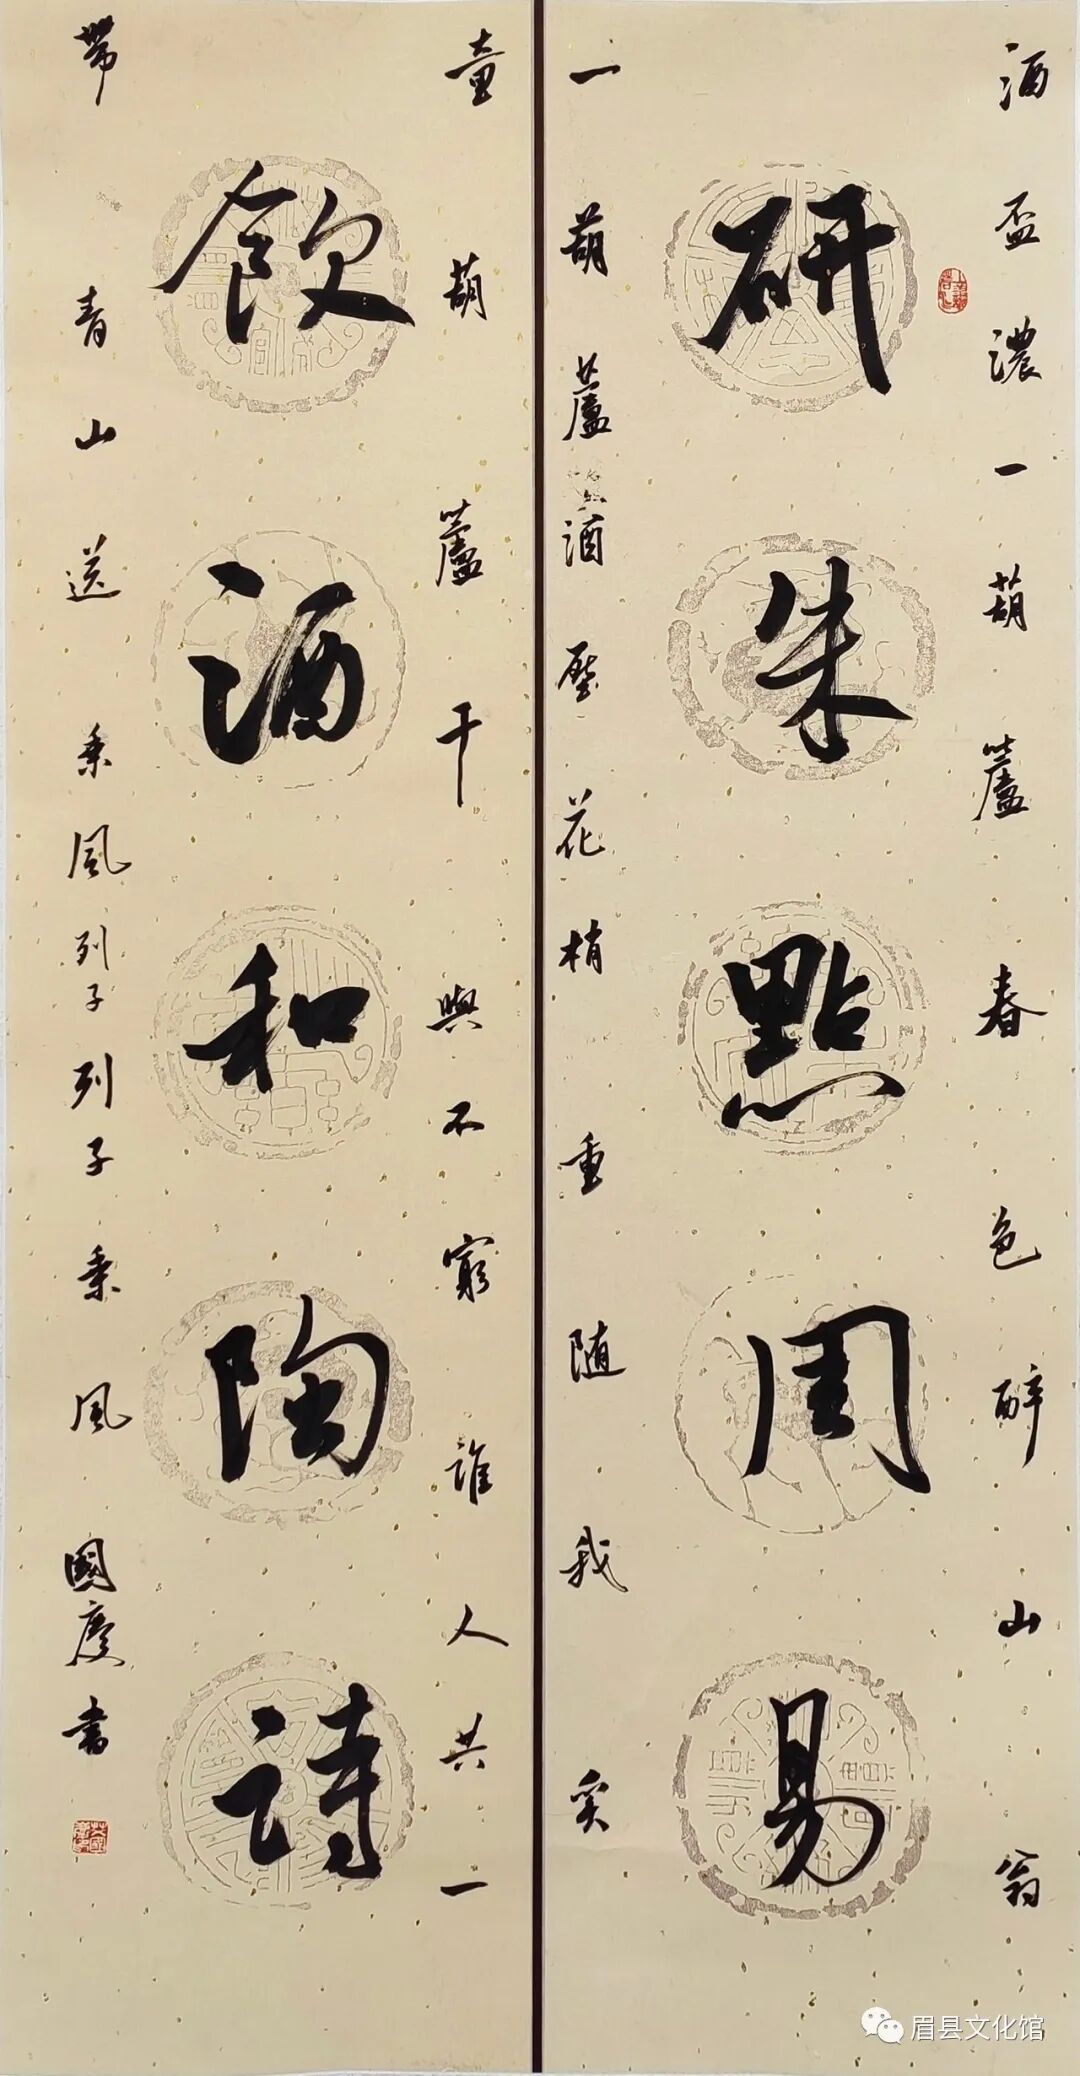 酒盃濃一葫蘆春色醉山翁
研朱點周易
一葫蘆酒壓花梢重随我奚
童葫蘆干興不窮誰人共一
飲酒和陶詩
帶青山送乘風列子列子乘風 國慶書
眉县文化馆